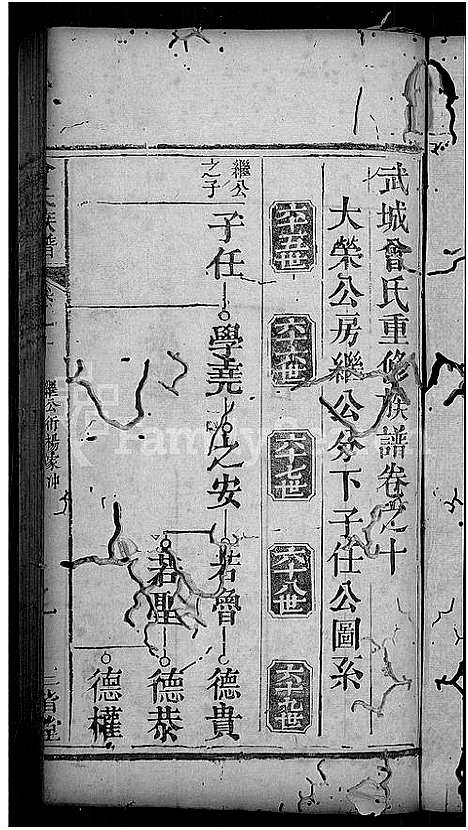 武城曾氏重修族譜卷之十
大榮公房繼公分下子任公圖系
六十五世
六十六世
六十七世
六十八世
六十九世
繼公之子
子任
學堯
之安
若魯
德貴
若聖
德恭
德權
氏族譜
繼公衍楊家沖
三省堂